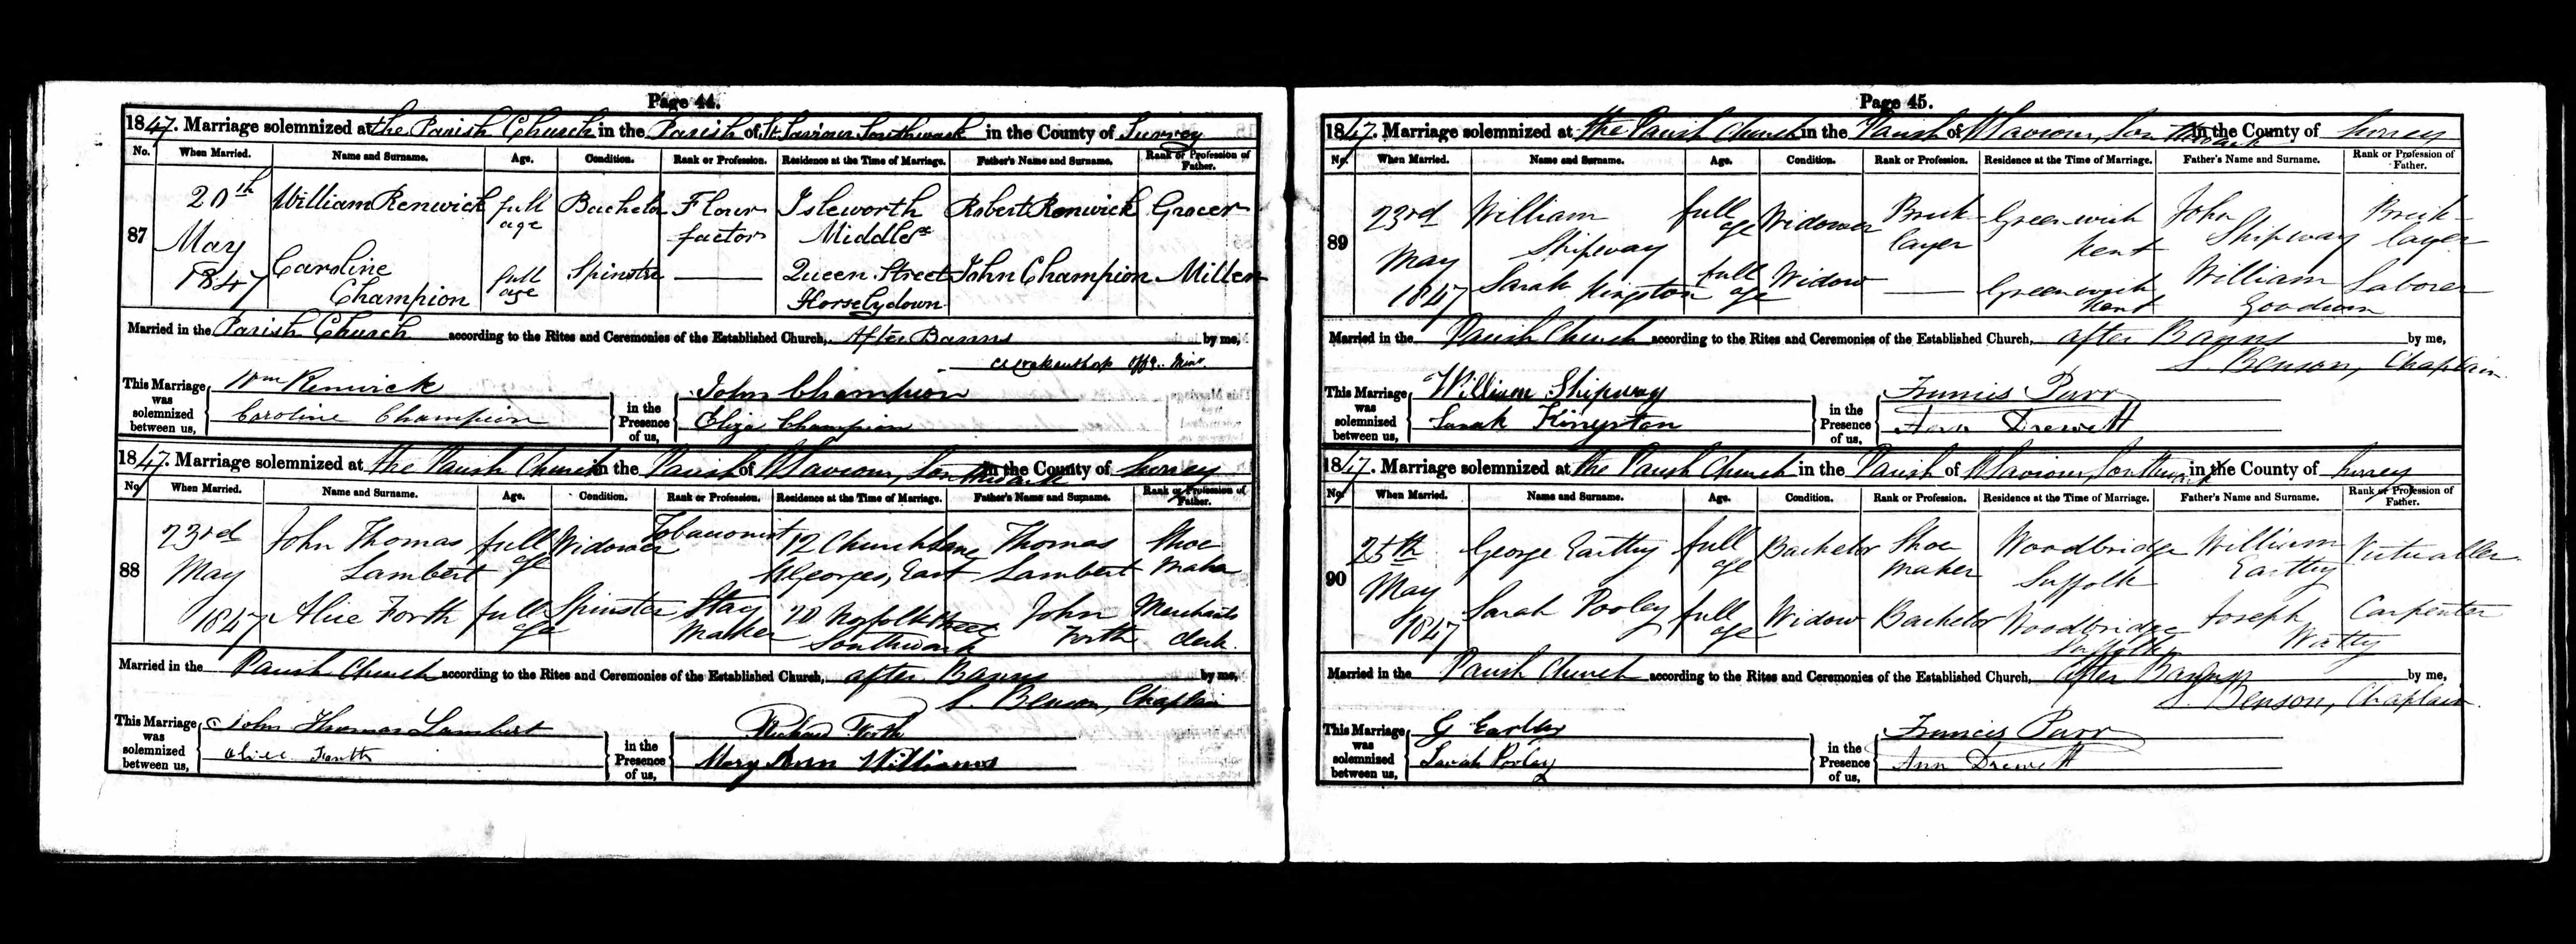 Page 44.
1847. Marriage solemnized at the Parish Church in the Parish of St. Saviour Southwark in the County of Surrey
No. When Married. Name and Surname. Age. Condition. Rank or Profession. Residence at the Time of Marriage. Father's Name and Surname. Rank or Profession of Father.
87 20th May 1847 William Renwick full age Bachelor Flour factor Isleworth Middlesx Robert Renwick Grocer
Caroline Champion full age Spinster — Queen Street Horselydown John Champion Miller
Married in the Parish Church according to the Rites and Ceremonies of the Established Church, After Banns by me,
Offg. Minr.
This Marriage was solemnized between us, Wm Renwick
Caroline Champion
in the Presence of us, John Champion
Eliza Champion
1847. Marriage solemnized at the Parish Church in the Parish of St Saviour, Southwark in the County of Surrey
No. When Married. Name and Surname. Age. Condition. Rank or Profession. Residence at the Time of Marriage. Father's Name and Surname. Rank or Profession of Father.
88 23rd May 1847 John Thomas Lambert full age Widower Tobacconist 12 Church Lane St Georges, East Thomas Lambert Shoe maker
Alice Forth full age Spinster Stay Maker 70 Norfolk Street Southwark John Forth Merchants clerk.
Married in the Parish Church according to the Rites and Ceremonies of the Established Church, after Banns by me,
S. Benson, Chaplain
This Marriage was solemnized between us, John Thomas Lambert
Alice Forth
in the Presence of us, Richard Forth
Mary Ann Williams
Page 45.
1847. Marriage solemnized at the Parish Church in the Parish of St Saviour, Southwark in the County of Surrey
No. When Married. Name and Surname. Age. Condition. Rank or Profession. Residence at the Time of Marriage. Father's Name and Surname. Rank or Profession of Father.
89 23rd May 1847 William Shipway full age Widower Brick-layer Greenwich Kent John Shipway Brick-layer
Sarah Kingston full age Widow — Greenwich Kent William Goodwin Laborer
Married in the Parish Church according to the Rites and Ceremonies of the Established Church, after Banns by me,
S. Benson, Chaplain.
This Marriage was solemnized between us, William Shipway
Sarah Kingston
in the Presence of us, Francis Parr
Ann Drewett
1847. Marriage solemnized at the Parish Church in the Parish of St Saviour, Southwark in the County of Surrey
No. When Married. Name and Surname. Age. Condition. Rank or Profession. Residence at the Time of Marriage. Father's Name and Surname. Rank or Profession of Father.
90 25th May 1847 George Earthy full age Bachelor Shoe Maker Woodbridge Suffolk William Earthy Victualler
Sarah Pooley full age Widow Bachelor Woodbridge Suffolk Joseph Carpenter
Married in the Parish Church according to the Rites and Ceremonies of the Established Church, After Banns by me,
S. Benson, Chaplain.
This Marriage was solemnized between us, G Earthy
Sarah Pooley
in the Presence of us, Francis Parr
Ann Drewett